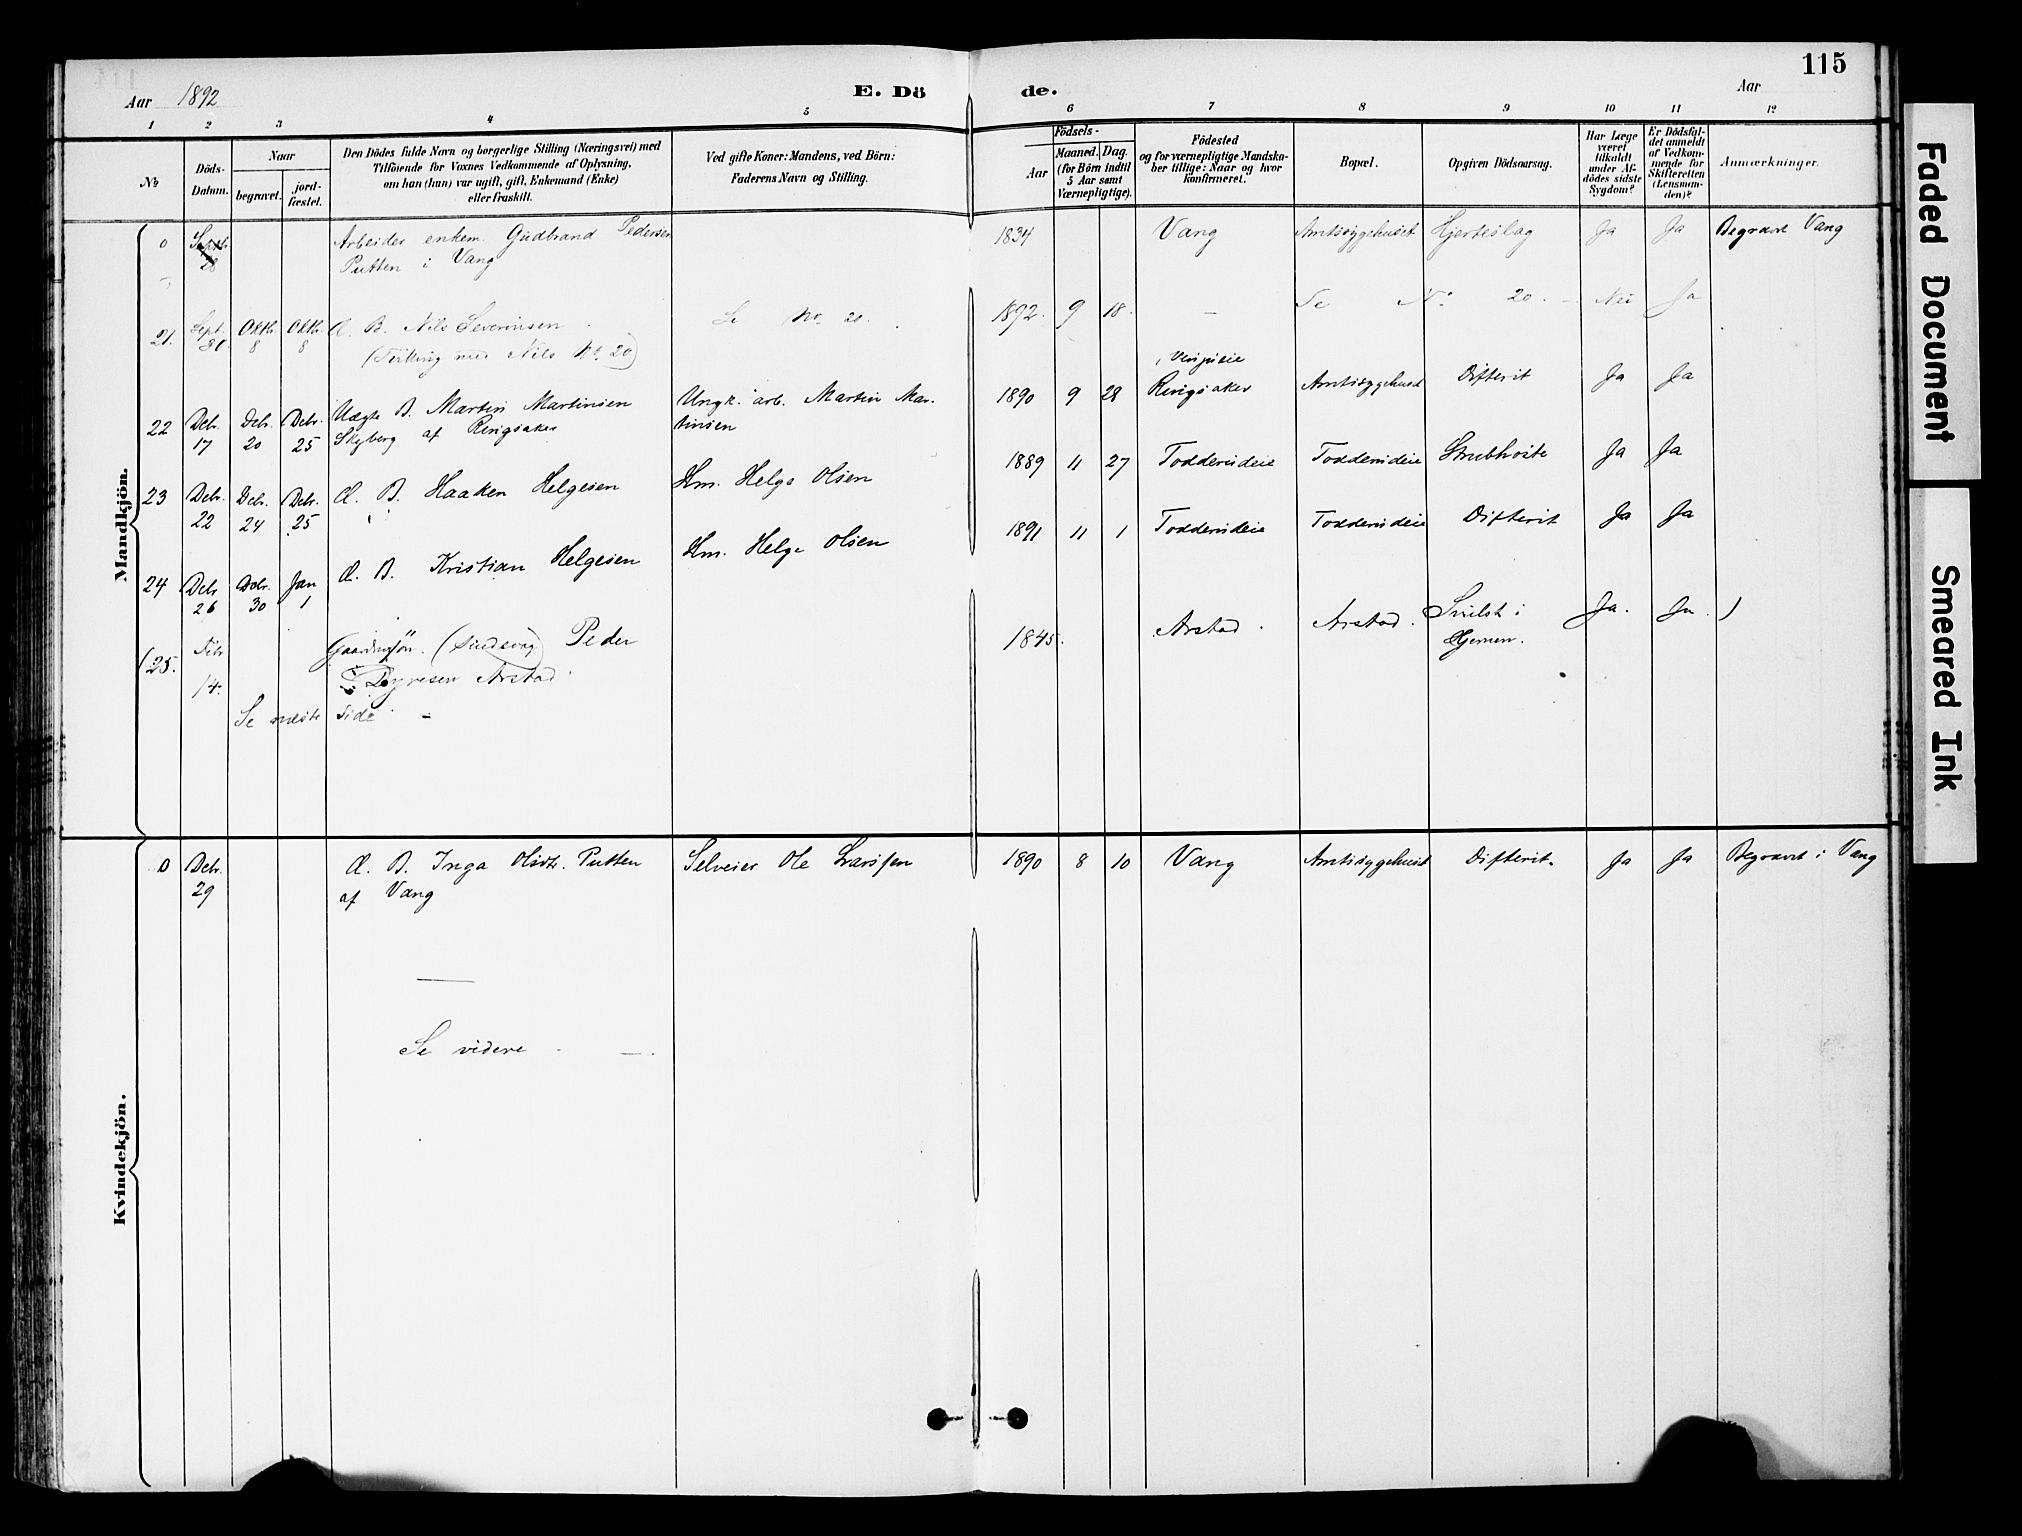 115
Aar 1892
E. Dö
de.
Aar
1 2 3 4 5 6 7 8 9 10 11 12
No
Döds-
Datum.
Naar
begravet.
jord-
fæstet.
Den Dödes fulde Navn og borgerlige Stilling (Næringsvei) med
Tilföiende for Voxnes Vedkommende af Oplysning,
om han (hun) var ugift, gift, Enkemand (Enke)
eller fraskilt.
Ved gifte Koner: Mandens, ved Börn:
Faderens Navn og Stilling.
Födsels-
Aar
Maaned. Dag.
(for Börn indtil
5 Aar samt
Værnepligtige).
Födested
og for værnepligtige Mandska-
ber tillige: Naar og hvor
konfirmeret.
Bopæl.
Opgiven Dödsaarsag.
Har Læge
været
tilkaldt
under Af-
dödes sidste
Sygdom?
Er Dödsfal-
det anmeldt
af Vedkom-
mende for
Skifteretten
(Lensman-
den)?
Anmærkninger.
Mandkjön.
0 Septbr. 28 Arbeider enkem. Gudbrand Pedersen
Putten i Vang
1834 Vang Amtssygehuset Hjerteslag Ja Ja Begravet Vang
21. Sept. 30. Oktb. 8 Oktb. 8 Æ. B. Nils Severinsen
(Tvilling med Nils No. 20)
Se No. 20.
1892. 9 18. — Se No 20. — Nei Ja
22 Debr. 17 Debr. 20 Debr. 25 Uægte B. Martin Martinsen
Skyberg af Ringsaker
Ungk. arb. Martin Mar-
tinsen
1890 9 28 Ringsaker Amtssygehuset Difterit Ja Ja
23 Debr. 22 Debr. 24 Debr. 25 Æ. B. Haaken Helgesen
Hm. Helge Olsen
1889 11 27 Todderndeie Todderndeie Strubhoste Ja Ja
24 Debr. 26 Debr. 30 Jan 1 Æ. B. Kristian Helgesen
Hm. Helge Olsen
1891 11 1 Todderndeie Todderndeie Difterit Ja Ja
(25. Febr 14. Gaardmsøn. (Sindsvag) Peder
Dyresen Arstad
1845. Arstad. Arstad. Svulst i
Hjernen.
Ja. Ja. )
Se næste Side —
Kvindekjön.
0 Debr. 29 Æ. B. Inga Olsdtr. Putten
af Vang
Selveier Ole Larssen
1890 8 10 Vang Amtssygehuset Difterit. Ja Ja Begravet i Vang
Se videre —
Faded Document
Smeared Ink